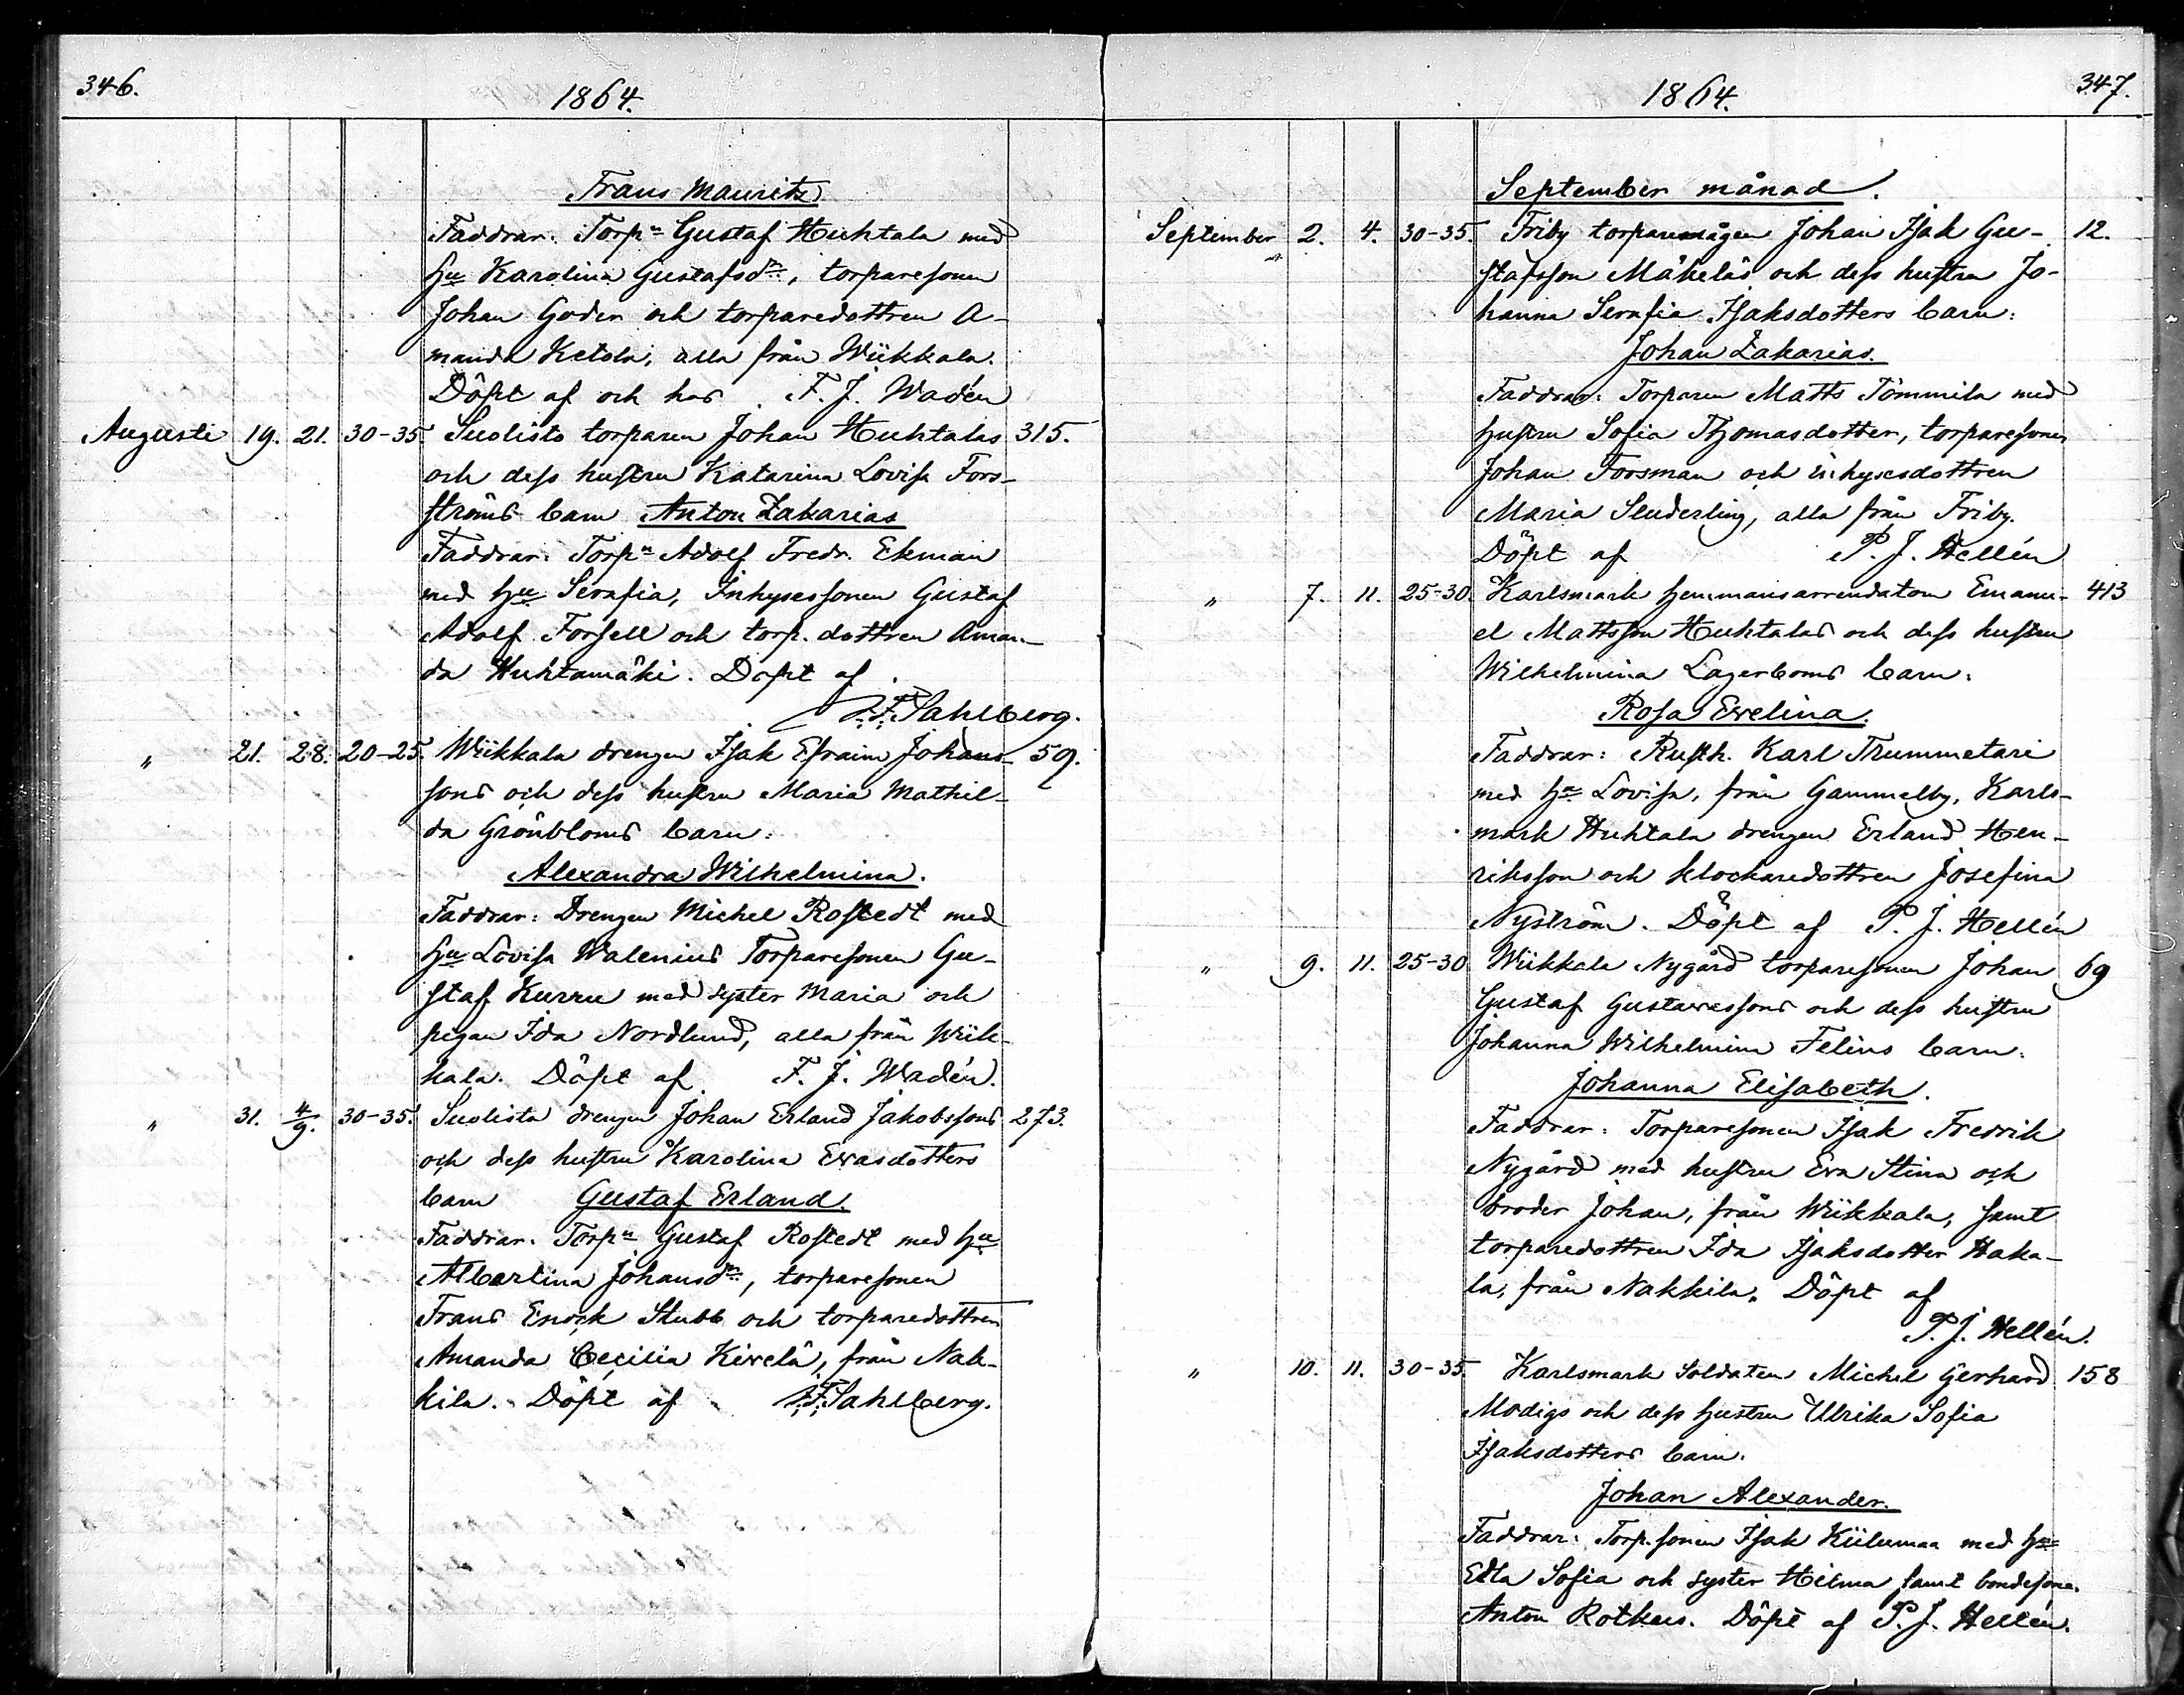 346.
1864.
Frans Mauritz
Faddrar: Torpn Gustaf Huhtala med
hu Karolina Gustafsdr, torparesonen
Johan Goder och torparedottren A-
manda Ketola, alla från Wiikkala.
Döpt af och hos F. J. Wadén
Augusti 19. 21. 30-35. Suolisto torparen Johan Huhtalas 315.
och dess hustru Katarina Lovisa Fors-
ströms barn Anton Zakarias
Faddrar: Torpn Adolf Fredr. Ekman
med hu Serafia, Inhysessonen Gustaf
Adolf Forsell och torp. dottren Aman-
da Huhtamäki. Döpt af
F. F. Sahlberg.
" 21. 28. 20-25. Wiikkala drengen Isak Efraim Johans- 59.
sons och dess hustru Maria Mathil-
da Grönbloms barn:
Alexandra Wilhelmina.
Faddrar: Drengen Michel Rostedt med
hu Lovisa Walenius Torparesonen Gu-
staf Kurru med syster Maria och
pigan Ida Nordlund, alla från Wiik-
kala. Döpt af F. J. Wadén.
" 31. 4/9. 30-35. Suolista drengen Johan Erland Jakobssons 273.
och dess hustru Karolina Evasdotters
barn Gustaf Erland.
Faddrar: Torpn Gustaf Rostedt med hu
Albertina Johansdr, torparesonen
Frans Enock Stubb och torparedottren
Amanda Cecilia Kivelä, från Nak-
kila. Döpt af F. F. Sahlberg.
347.
1864.
September månad.
September 2. 4. 30-35. Friby torparemågen Johan Isak Gu- 12.
stafsson Mäkeläs och dess hustru Jo-
hanna Serafia Isaksdotters barn:
Johan Zakarias.
Faddrar: Torparen Matts Tömmila med
hustru Sofia Thomasdotter, torparesonen
Johan Forsman och inhysesdottren
Maria Senderling, alla från Friby.
Döpt af P. J. Hellén
" 7. 11. 25-30. Karlsmark hemmansarrendatorn Emanu- 413
el Mattsson Huhtalas och dess hustru
Wilhelmina Lagerboms barn:
Rosa Evelina.
Faddrar: Rusth. Karl Trummetari
med hu Lovisa, från Gammelby, Karls-
mark Huhtala drengen Erland Hen-
riksson och klockaredottren Josefina
Nyström. Döpt af P. J. Hellén
" 9. 11. 25-30 Wiikkala Nygård torparesonen Johan 69
Gustaf Gustavessons och dess hustru
Johanna Wilhelmina Felins barn:
Johanna Elisabeth.
Faddrar: Torparesonen Isak Fredrik
Nygård med hustru Eva Stina och
broder Johan, från Wiikkala, samt
torparedottren Ida Isaksdotter Haka-
la, från Nakkila. Döpt af
P. J. Hellén.
" 10. 11. 30-35. Karlsmark Soldaten Michel Gerhard 158
Modigs och dess hustru Ulrika Sofia
Isaksdotters barn.
Johan Alexander.
Faddrar: Torp.sonen Isak Kiilumaa med hu
Edla Sofia och syster Hilma samt bondesone.
Anton Rotkus. Döpt af P. J. Hellén.